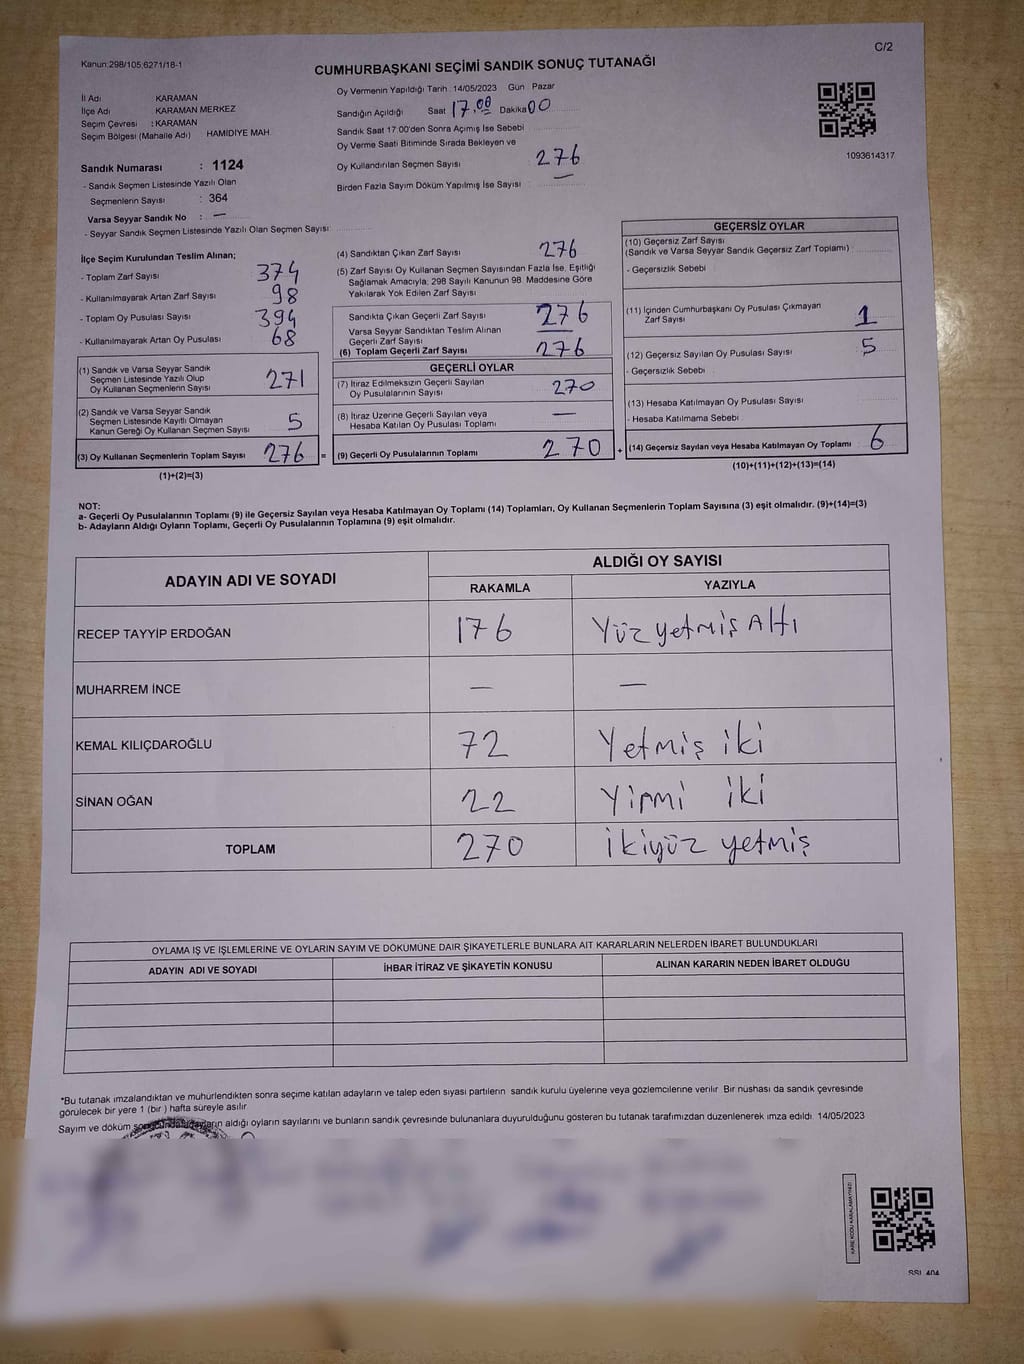 C/2
Kanun:298/105;6271/18-1
CUMHURBAŞKANI SEÇİMİ SANDIK SONUÇ TUTANAĞI
İl Adı KARAMAN
İlçe Adı KARAMAN MERKEZ
Seçim Çevresi : KARAMAN
Seçim Bölgesi (Mahalle Adı) HAMIDIYE MAH.
Sandık Numarası : 1124
- Sandık Seçmen Listesinde Yazılı Olan
Seçmenlerin Sayısı : 364
Varsa Seyyar Sandık No : —
- Seyyar Sandık Seçmen Listesinde Yazılı Olan Seçmen Sayısı:
Oy Vermenin Yapıldığı Tarih 14/05/2023 Gün Pazar
Sandığın Açıldığı Saat 17.00 Dakika 00
Sandık Saat 17 00'den Sonra Açımış İse Sebebi
Oy Verme Saati Bitiminde Sırada Bekleyen ve
Oy Kullandırılan Seçmen Sayısı 276
Birden Fazla Sayım Döküm Yapılmış İse Sayısı —
1093614317
İlçe Seçim Kurulundan Teslim Alınan;
- Toplam Zarf Sayısı 374
- Kullanılmayarak Artan Zarf Sayısı 98
- Toplam Oy Pusulası Sayısı 394
- Kullanılmayarak Artan Oy Pusulası 68
(1) Sandık ve Varsa Seyyar Sandık
Seçmen Listesinde Yazılı Olup
Oy Kullanan Seçmenlerin Sayısı 271
(2) Sandık ve Varsa Seyyar Sandık
Seçmen Listesinde Kayıtlı Olmayan
Kanun Gereği Oy Kullanan Seçmen Sayısı 5
(3) Oy Kullanan Seçmenlerin Toplam Sayısı 276 =
(1)+(2)=(3)
(4) Sandıktan Çıkan Zarf Sayısı 276
(5) Zarf Sayısı Oy Kullanan Seçmen Sayısından Fazla İse, Eşitliği
Sağlamak Amacıyla; 298 Sayılı Kanunun 98. Maddesine Göre
Yakılarak Yok Edilen Zarf Sayısı
Sandıkta Çıkan Geçerli Zarf Sayısı 276
Varsa Seyyar Sandıktan Teslim Alınan
Geçerli Zarf Sayısı —
(6) Toplam Geçerli Zarf Sayısı 276
GEÇERLİ OYLAR
(7) İtiraz Edilmeksizin Geçerli Sayılan
Oy Pusulalarının Sayısı 270
(8) İtiraz Üzerine Geçerli Sayılan veya
Hesaba Katılan Oy Pusulası Toplamı —
(9) Geçerli Oy Pusulalarının Toplamı 270 +
GEÇERSİZ OYLAR
(10) Geçersiz Zarf Sayısı
(Sandık ve Varsa Seyyar Sandık Geçersiz Zarf Toplamı)
- Geçersizlik Sebebi
(11) İçinden Cumhurbaşkanı Oy Pusulası Çıkmayan
Zarf Sayısı 1
(12) Geçersiz Sayılan Oy Pusulası Sayısı 5
- Geçersizlik Sebebi
(13) Hesaba Katılmayan Oy Pusulası Sayısı
- Hesaba Katılmama Sebebi
(14) Geçersiz Sayılan veya Hesaba Katılmayan Oy Toplamı 6
(10)+(11)+(12)+(13)=(14)
NOT:
a- Geçerli Oy Pusulalarının Toplamı (9) ile Geçersiz Sayılan veya Hesaba Katılmayan Oy Toplamı (14) Toplamları, Oy Kullanan Seçmenlerin Toplam Sayısına (3) eşit olmalıdır. (9)+(14)=(3)
b- Adayların Aldığı Oyların Toplamı, Geçerli Oy Pusulalarının Toplamına (9) eşit olmalıdır.
ADAYIN ADI VE SOYADI
ALDIĞI OY SAYISI
RAKAMLA YAZIYLA
RECEP TAYYİP ERDOĞAN 176 Yüz yetmiş Altı
MUHARREM İNCE — —
KEMAL KILIÇDAROĞLU 72 Yetmiş iki
SİNAN OĞAN 22 Yirmi iki
TOPLAM 270 ikiyüz yetmiş
OYLAMA İŞ VE İŞLEMLERİNE VE OYLARIN SAYIM VE DÖKÜMÜNE DAİR ŞİKAYETLERLE BUNLARA AİT KARARLARIN NELERDEN İBARET BULUNDUKLARI
ADAYIN ADI VE SOYADI İHBAR İTİRAZ VE ŞİKAYETİN KONUSU ALINAN KARARIN NEDEN İBARET OLDUĞU
*Bu tutanak imzalandıktan ve mühürlendikten sonra seçime katılan adayların ve talep eden siyasi partilerin sandık kurulu üyelerine veya gözlemcilerine verilir. Bir nüshası da sandık çevresinde
görülecek bir yere 1 (bir ) hafta süreyle asılır.
Sayım ve döküm sonucunda adayların aldığı oyların sayılarını ve bunların sandık çevresinde bulunanlara duyurulduğunu gösteren bu tutanak tarafımızdan düzenlenerek imza edildi. 14/05/2023
KARE KODU KARALAMAYINIZ!